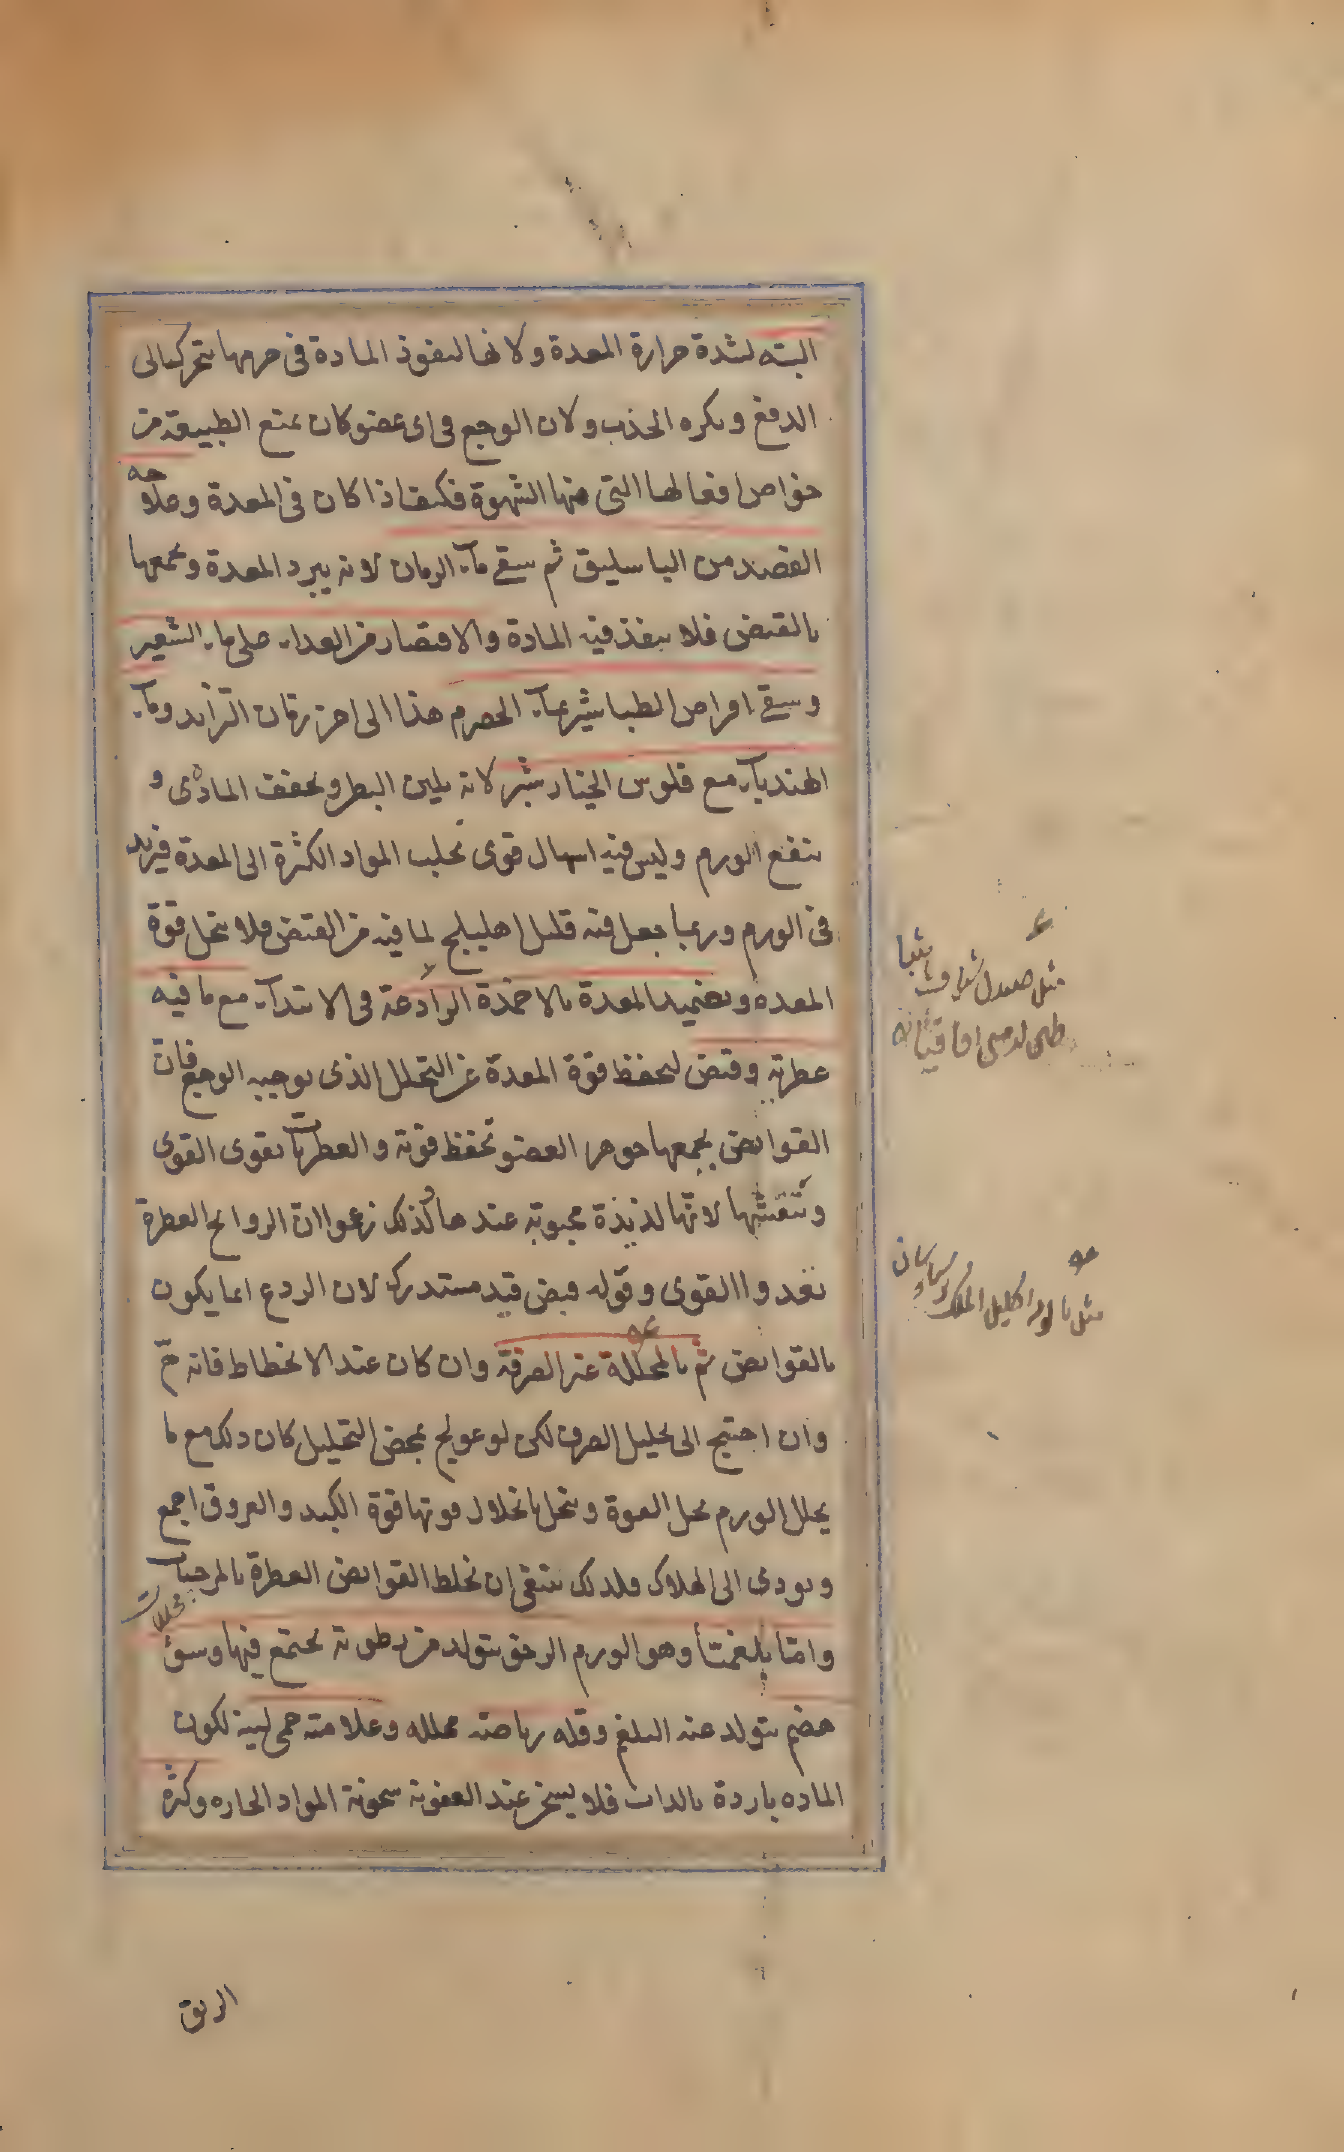 البته لشدة حرارة المعدة ولانها لنفوذ المادة فى جرمها تتحرك الى
الدفع وىكره الجذب ولان الوجع فى اى عضو كان يمنع الطبيعة من
خواص افعالها التى منها الشهوة فكيف اذا كان فى المعدة وعلاجه
الفصد من الباسليق ثم سقى مآء الرمان لانه يبرد المعدة ويجمعها
بالقبض فلا ينفذ فيه المادة والاقتصار من الغداء على ماء الشعير
وسقى اقراص الطباشير بمآء الحصرم هذا الى اخر زمان التزايد ومآء
الهندبآء مع فلوس الخيار شنبر لانه يلين البطن ويخفف المادة و
ينفع الورم وليس فيه اسهال قوى يجلب المواد الكثرة الى المعدة فيزيد
فى الورم وربما جعل فيه قليل اهليلج لما فيه من القبض فلا ينحل قوة
المعده وتضميد المعدة بالاضمدة الرادعة فى الابتدآء مع ما فيه
عطرية وقبض ليحفظ قوة المعدة عن التحلل الذى يوجبه الوجع فان
القوابض بجمعها جوهر العضو تحفظ قوته والعطريات تقوى القوى
وتنعشها لانها لذيذة محبوبة عندها ولذلك زعموا ان الروائح العطرة
تغدوا القوى وقوله قبض قيد مستدرك لان الردع انما يكون
بالقوابض ثم بالمحللة غير الصرفة وان كان عند الانحطاط فانه ح
وان احتيج الى تحليل الصرف لكن لو عولج بمحض التحليل كان ذلك مع ما
يحلل الورم يحل القوة وينحل بانحلال قوتها قوة الكبد والعروق اجمع
ويودى الى الهلاك فلذلك ينبغى ان يخلط القوابض العطرة بالمرخيات
محللات
واما بلغميا وهو الورم الرخو يتولد من رطوبة تجتمع فيها وسوء
هضم يتولد عنه البلغم وقله رياضته محلله وعلامته حمى لينة لكون
الماده باردة بالذات فلا يسخن عند العفونة سخونة المواد الحاره وكثرة
الريق
مثل صندل
مثل بابونه اكليل الملك